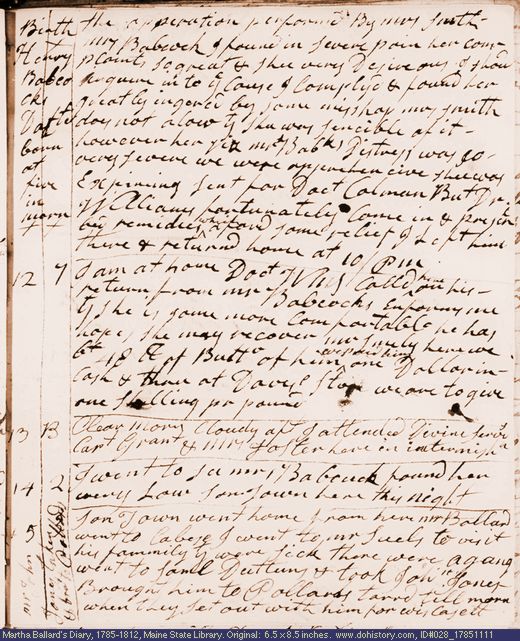 Birth
Henry
Babco
cks
Dafts
born
at
five
in
morn
the opperation performd By mrs Smith
mrs Babcock I found in severe pain her com
plaints So great & shee very Desireous I shoul
inquire into ye Cause I Complyd & found her
greatly ingered by some mishap mrs Smith
does not alow yt Shee was sencible of it
however her yt mrs Babks Distress was so
very severe we were apprehencive shee was
Expireing sent for Doct Colman But Dr
Williams fortunately Came in & prescri
bd remedies which afford some relief I left him
there & returnd home at 10 / Pm
12 7 I am at home Doct Wms Calld here on his
return from mrs Babcocks Enforms me
yt She is some more Comfortable he has
hope, she may recover mr Smely here we
bt 48 £ of Buttr of him we paid him one Dollar in
Cash & thee at Davis Store we are to give
one Shilling pr pound
13 B Clear morn Cloudy aft I attended Divine Servis
Capt Grant & mrs Foster here in intermishn
14 2 I went to se mrs Babcock found her
very Low Son Town here this night
15
Son Town went home from here mr Ballard
went to Cabesy I went to mr Seels to visit
his fammily yt were sick there were a gang
went to Saml Duttuns & took Jon Jones
Brought him to Pollards tarrd till morn
when they set out with him for wiscasett
Martha Ballard's Diary, 1785-1812, Maine State Library. Original: 6.5 x 8.5 inches www.dohistory.org ID#028_17851111